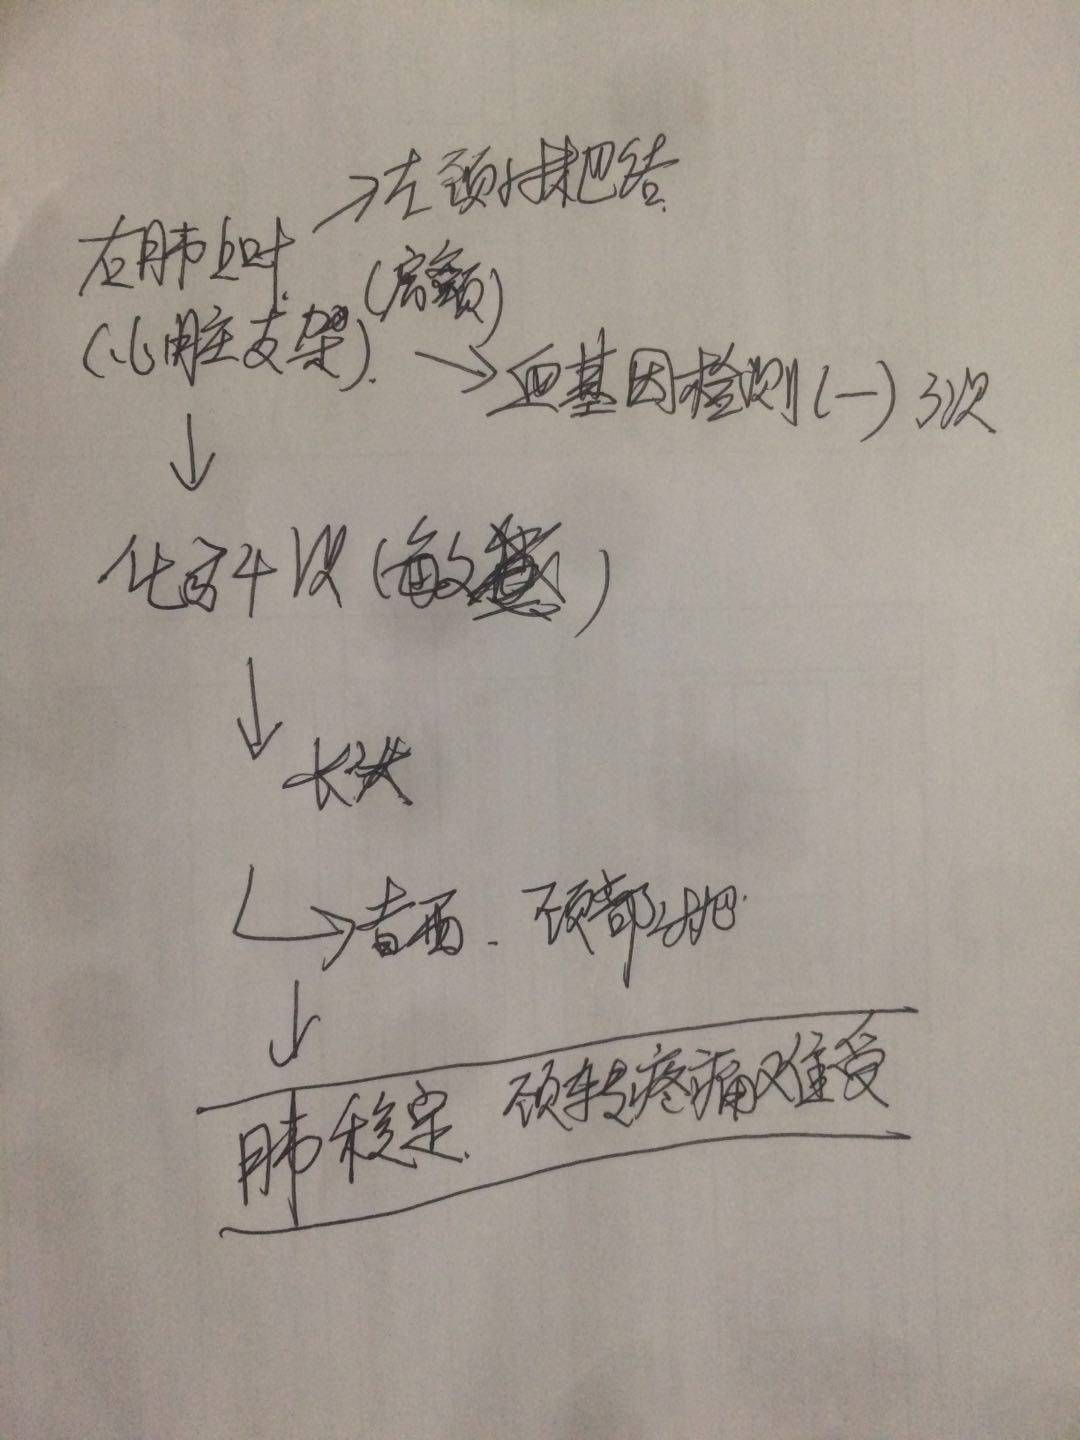 →左颈淋巴结
右肺上叶
(心脏支架)
→血基因检测(一)3次
↓
化疗4次(敏
↓
长大
颈部淋巴
↓
肺稳定 颈转疼痛难受